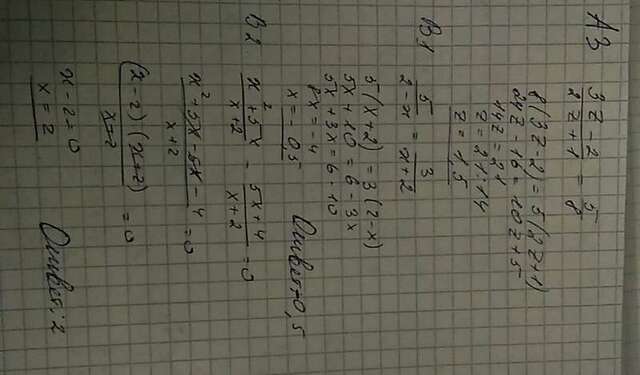 А3 (3z-2)/(2z+1) = 5/8
8(3z-2) = 5(2z+1)
24z-16=10z+5
14z=21
z=21:14
z=1,5
В1 5/(2-x) = 3/(x+2)
5(x+2)=3(2-x)
5x+10=6-3x
5x+3x=6-10
8x=-4
x=-0,5 Ответ:-0,5
В2 (x²+5x)/(x+2) - (5x+4)/(x+2) =0
(x²+5x-5x-4)/(x+2) =0
(x-2)(x+2)/(x+2) =0
x-2=0
x=2 Ответ: 2